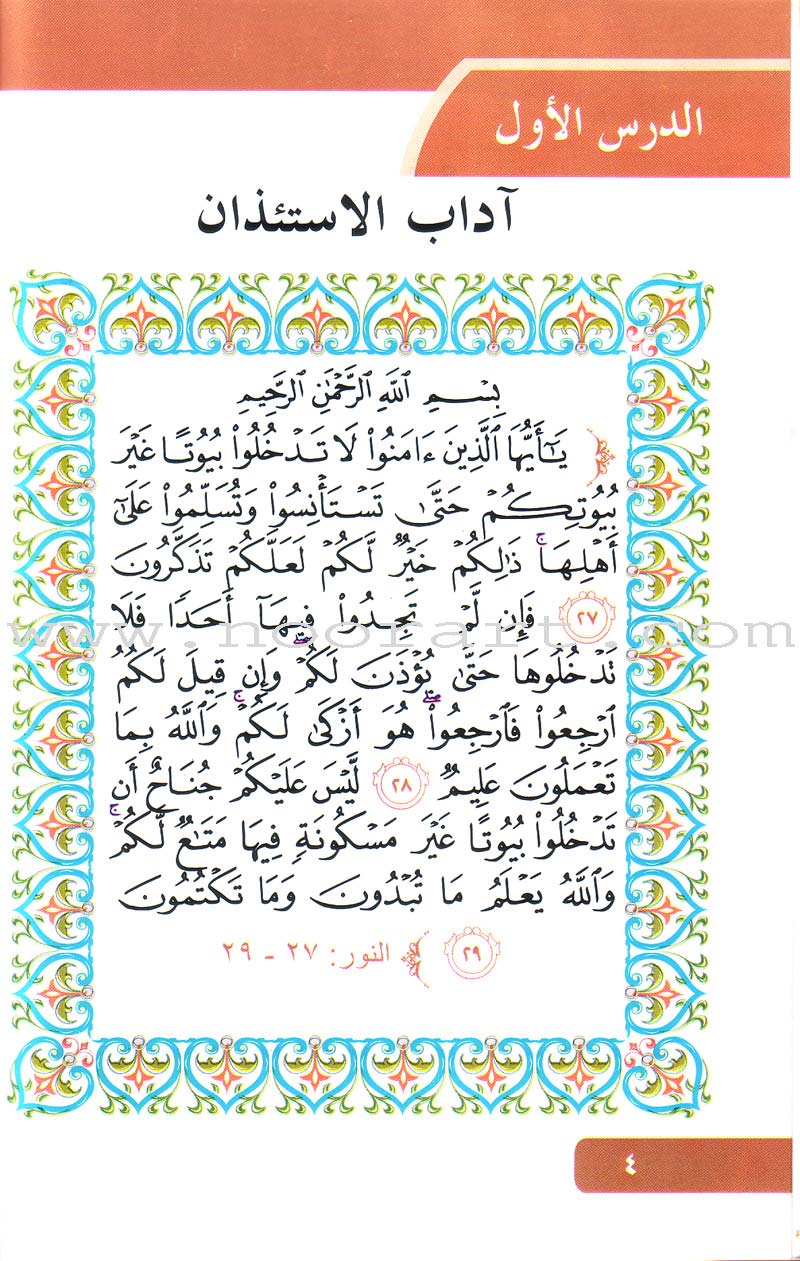 الدرس الأول
آداب الاستئذان
بِسْمِ ٱللَّهِ ٱلرَّحْمَٰنِ ٱلرَّحِيمِ
﴿ يَـٰٓأَيُّهَا ٱلَّذِينَ ءَامَنُوا۟ لَا تَدْخُلُوا۟ بُيُوتًا غَيْرَ
بُيُوتِكُمْ حَتَّىٰ تَسْتَأْنِسُوا۟ وَتُسَلِّمُوا۟ عَلَىٰٓ
أَهْلِهَا ۚ ذَٰلِكُمْ خَيْرٌ لَّكُمْ لَعَلَّكُمْ تَذَكَّرُونَ
٢٧ فَإِن لَّمْ تَجِدُوا۟ فِيهَآ أَحَدًا فَلَا
www.noorart.com
تَدْخُلُوهَا حَتَّىٰ يُؤْذَنَ لَكُمْ ۖ وَإِن قِيلَ لَكُمُ
ٱرْجِعُوا۟ فَٱرْجِعُوا۟ ۖ هُوَ أَزْكَىٰ لَكُمْ ۚ وَٱللَّهُ بِمَا
تَعْمَلُونَ عَلِيمٌ ٢٨ لَّيْسَ عَلَيْكُمْ جُنَاحٌ أَن
تَدْخُلُوا۟ بُيُوتًا غَيْرَ مَسْكُونَةٍ فِيهَا مَتَـٰعٌ لَّكُمْ ۚ
وَٱللَّهُ يَعْلَمُ مَا تُبْدُونَ وَمَا تَكْتُمُونَ
٢٩ ﴾ النور: ٢٧ - ٢٩
٤